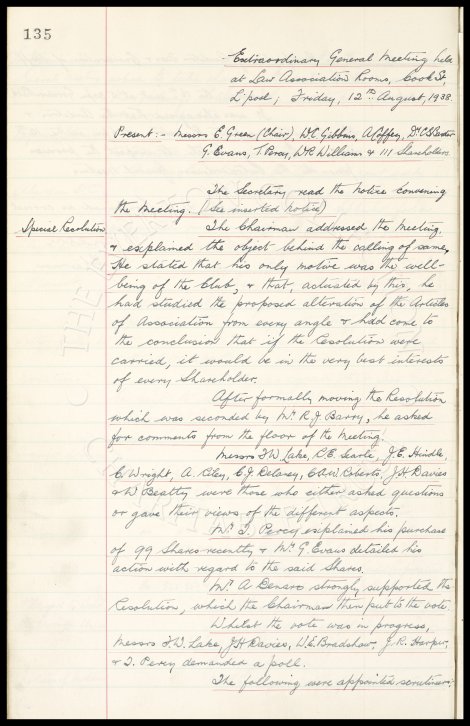 135
Extraordinary General Meeting held
at Law Association Rooms, Cook St.
L'pool, Friday, 12th August, 1938.
Present:- Messrs E. Green (Chair), W.C. Gibbins, A. Coffey, Dr C.S. Baxter
G. Evans, T. Percy, W.R. Williams & 111 Shareholders.
The Secretary read the notice convening
the Meeting. (See inserted notice)
Special Resolution
The Chairman addressed the Meeting,
& explained the object behind the calling of same.
He stated that his only motive was the well-
being of the Club, & that, actuated by this, he
had studied the proposed alteration of the Articles
of Association from every angle & had come to
the conclusion that if the Resolution were
carried, it would be in the very best interests
of every Shareholder.
After formally moving the Resolution
which was seconded by Mr. R.J. Barry, he asked
for comments from the floor of the Meeting.
Messrs F.W. Lake, C.E. Searle, J.E. Hindle,
C. Wright, A. Riley, E.J. Delaney, C.A.W. Roberts, J.H. Davies
& W. Beatty were those who either asked questions
or gave their views of the different aspects.
Mr. T. Percy explained his purchase
of 99 Shares recently, & Mr. G. Evans detailed his
action with regard to the said Shares.
Mr. A. Denaro strongly supported the
Resolution, which the Chairman then put to the vote.
Whilst the vote was in progress,
Messrs F.W. Lake, J.H. Davies, W.E. Bradshaw, J.R. Harper,
& T. Percy demanded a poll.
The following were appointed scrutineers: